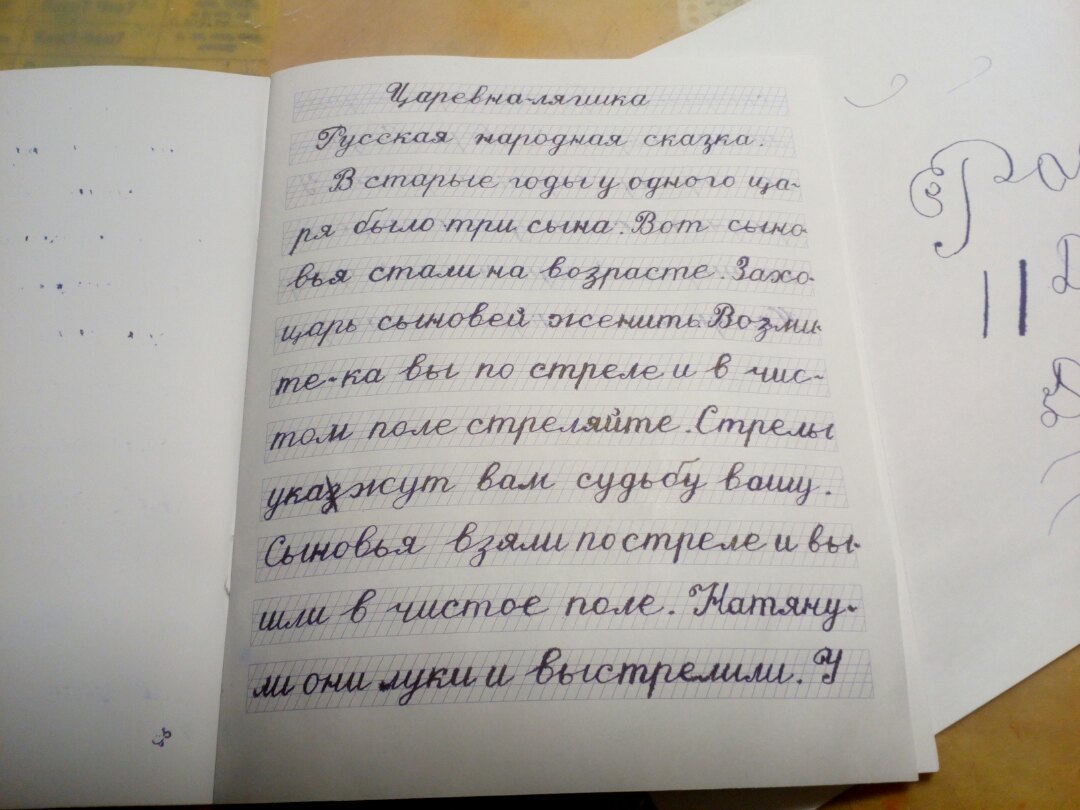 Царевна-лягушка
Русская народная сказка.
В старые годы у одного ца-
ря было три сына. Вот сыно-
вья стали на возрасте. Захо-
царь сыновей женить. Возьми-
те-ка вы по стреле и в чис-
том поле стреляйте. Стрелы
укажут вам судьбу вашу.
Сыновья взяли по стреле и вы-
шли в чистое поле. Натяну-
ли они луки и выстрелили. У